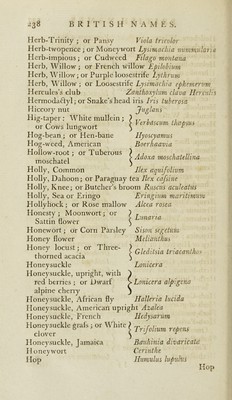 238 BRITISH NAMES.
Herb-Trinity ; or Pansy Viola tricolor
Herb-twopence ; or Moneywort Lysimachia nummularia
Herb-impious ; or Cudweed Filago montana
Herb, Willow ; or French willow Epilobium
Herb, Willow ; or Purple loosestrife Lythrum
Herb, Willow ; or Loosestrife Lysimachia ephemerum
Hercules's club Zanthoxylum clava Herculis
Hermodactyl ; or Snake's head iris Iris tuberosa
Hiccory nut Juglans
Hig-taper : White mullein ;
or Cows lungwort } Verbascum thapsus
Hog-bean ; or Hen-bane Hyoscyamus
Hog-weed, American Boerhaavia
Hollow-root ; or Tuberous
moschatel } Adoxa moschatellina
Holly, Common Ilex aquifolium
Holly, Dahoon ; or Paraguay tea Ilex cassine
Holly, Knee ; or Butcher's broom Ruscus aculeatus
Holly, Sea or Eringo Eringium maritimum
Hollyhock ; or Rose mallow Alcea rosea
Honesty ; Moonwort ; or
Sattin flower } Lunaria
Honewort ; or Corn Parsley Sison segetum
Honey flower Melianthus
Honey locust ; or Three-
thorned acacia } Gleditsia triacanthos
Honeysuckle Lonicera
Honeysuckle, upright, with
red berries ; or Dwarf
alpine cherry } Lonicera alpigena
Honeysuckle, African fly Halleria lucida
Honeysuckle, American upright Azalea
Honeysuckle, French Hedysarum
Honeysuckle grass ; or White
clover } Trifolium repens
Honeysuckle, Jamaica Bauhinia divaricata
Honeywort Cerinthe
Hop Humulus lupulus
Hop